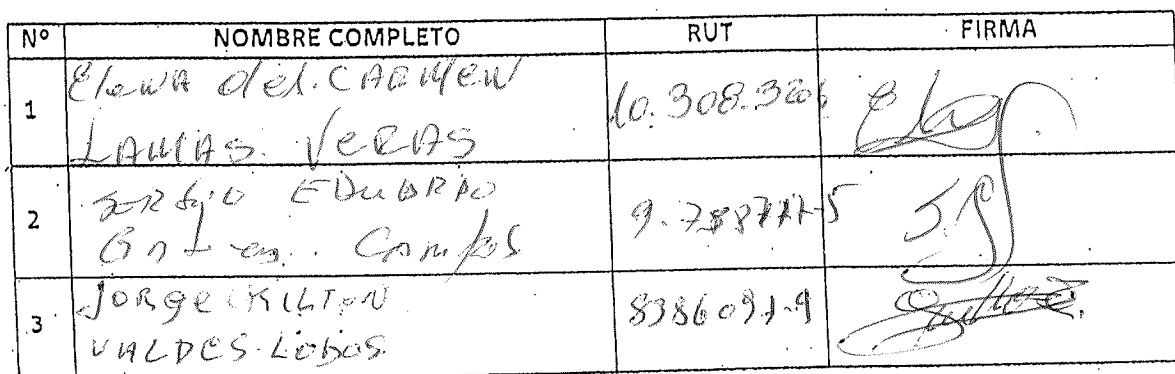 Nº NOMBRE COMPLETO RUT FIRMA
1 Elena del. CARMEN
LAMAS VERAS 10.308.320
2 SERGIO EDUARDO
Campos 9.788777-5
3 JORGE
VALDES LOBOS 8386091-9